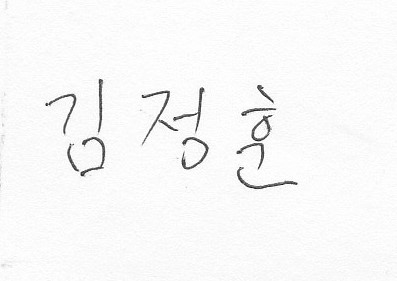 김정훈